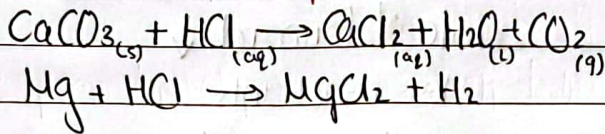 CaCO3(s) + HCl(aq) → CaCl2(aq) + H2O(l) + CO2(g)
Mg + HCl → MgCl2 + H2